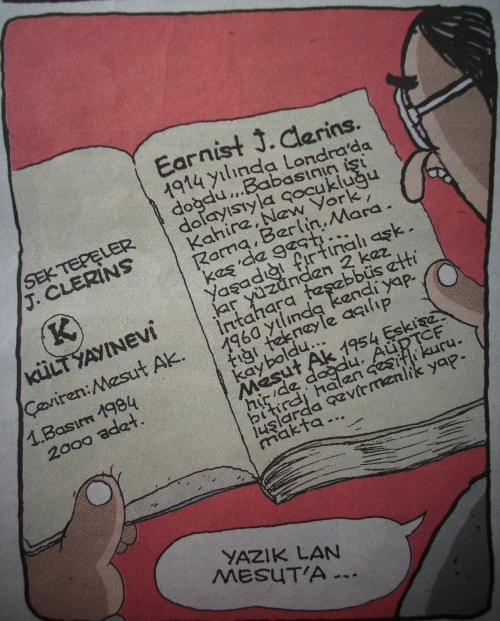 SEK TEPELER
J. CLERINS
K
KÜLT YAYINEVİ
Çeviren: Mesut Ak.
1. Basım 1984
2000 adet.
Earnist J. Clerins.
1914 yılında Londra'da
doğdu... Babasının işi
dolayısıyla çocukluğu
Kahire, New York,
Roma, Berlin, Mara-
keş'de geçti...
Yaşadığı fırtınalı aşk-
lar yüzünden 2 kez
intahara teşebbüs etti
1960 yılında kendi yap-
tığı tekneyle açılıp
kayboldu...
Mesut Ak 1954 Eskişe-
hir'de doğdu. AÜDTCF
bitirdi halen çeşitli kuru-
luşlarda çevirmenlik yap-
makta...
YAZIK LAN
MESUT'A ...